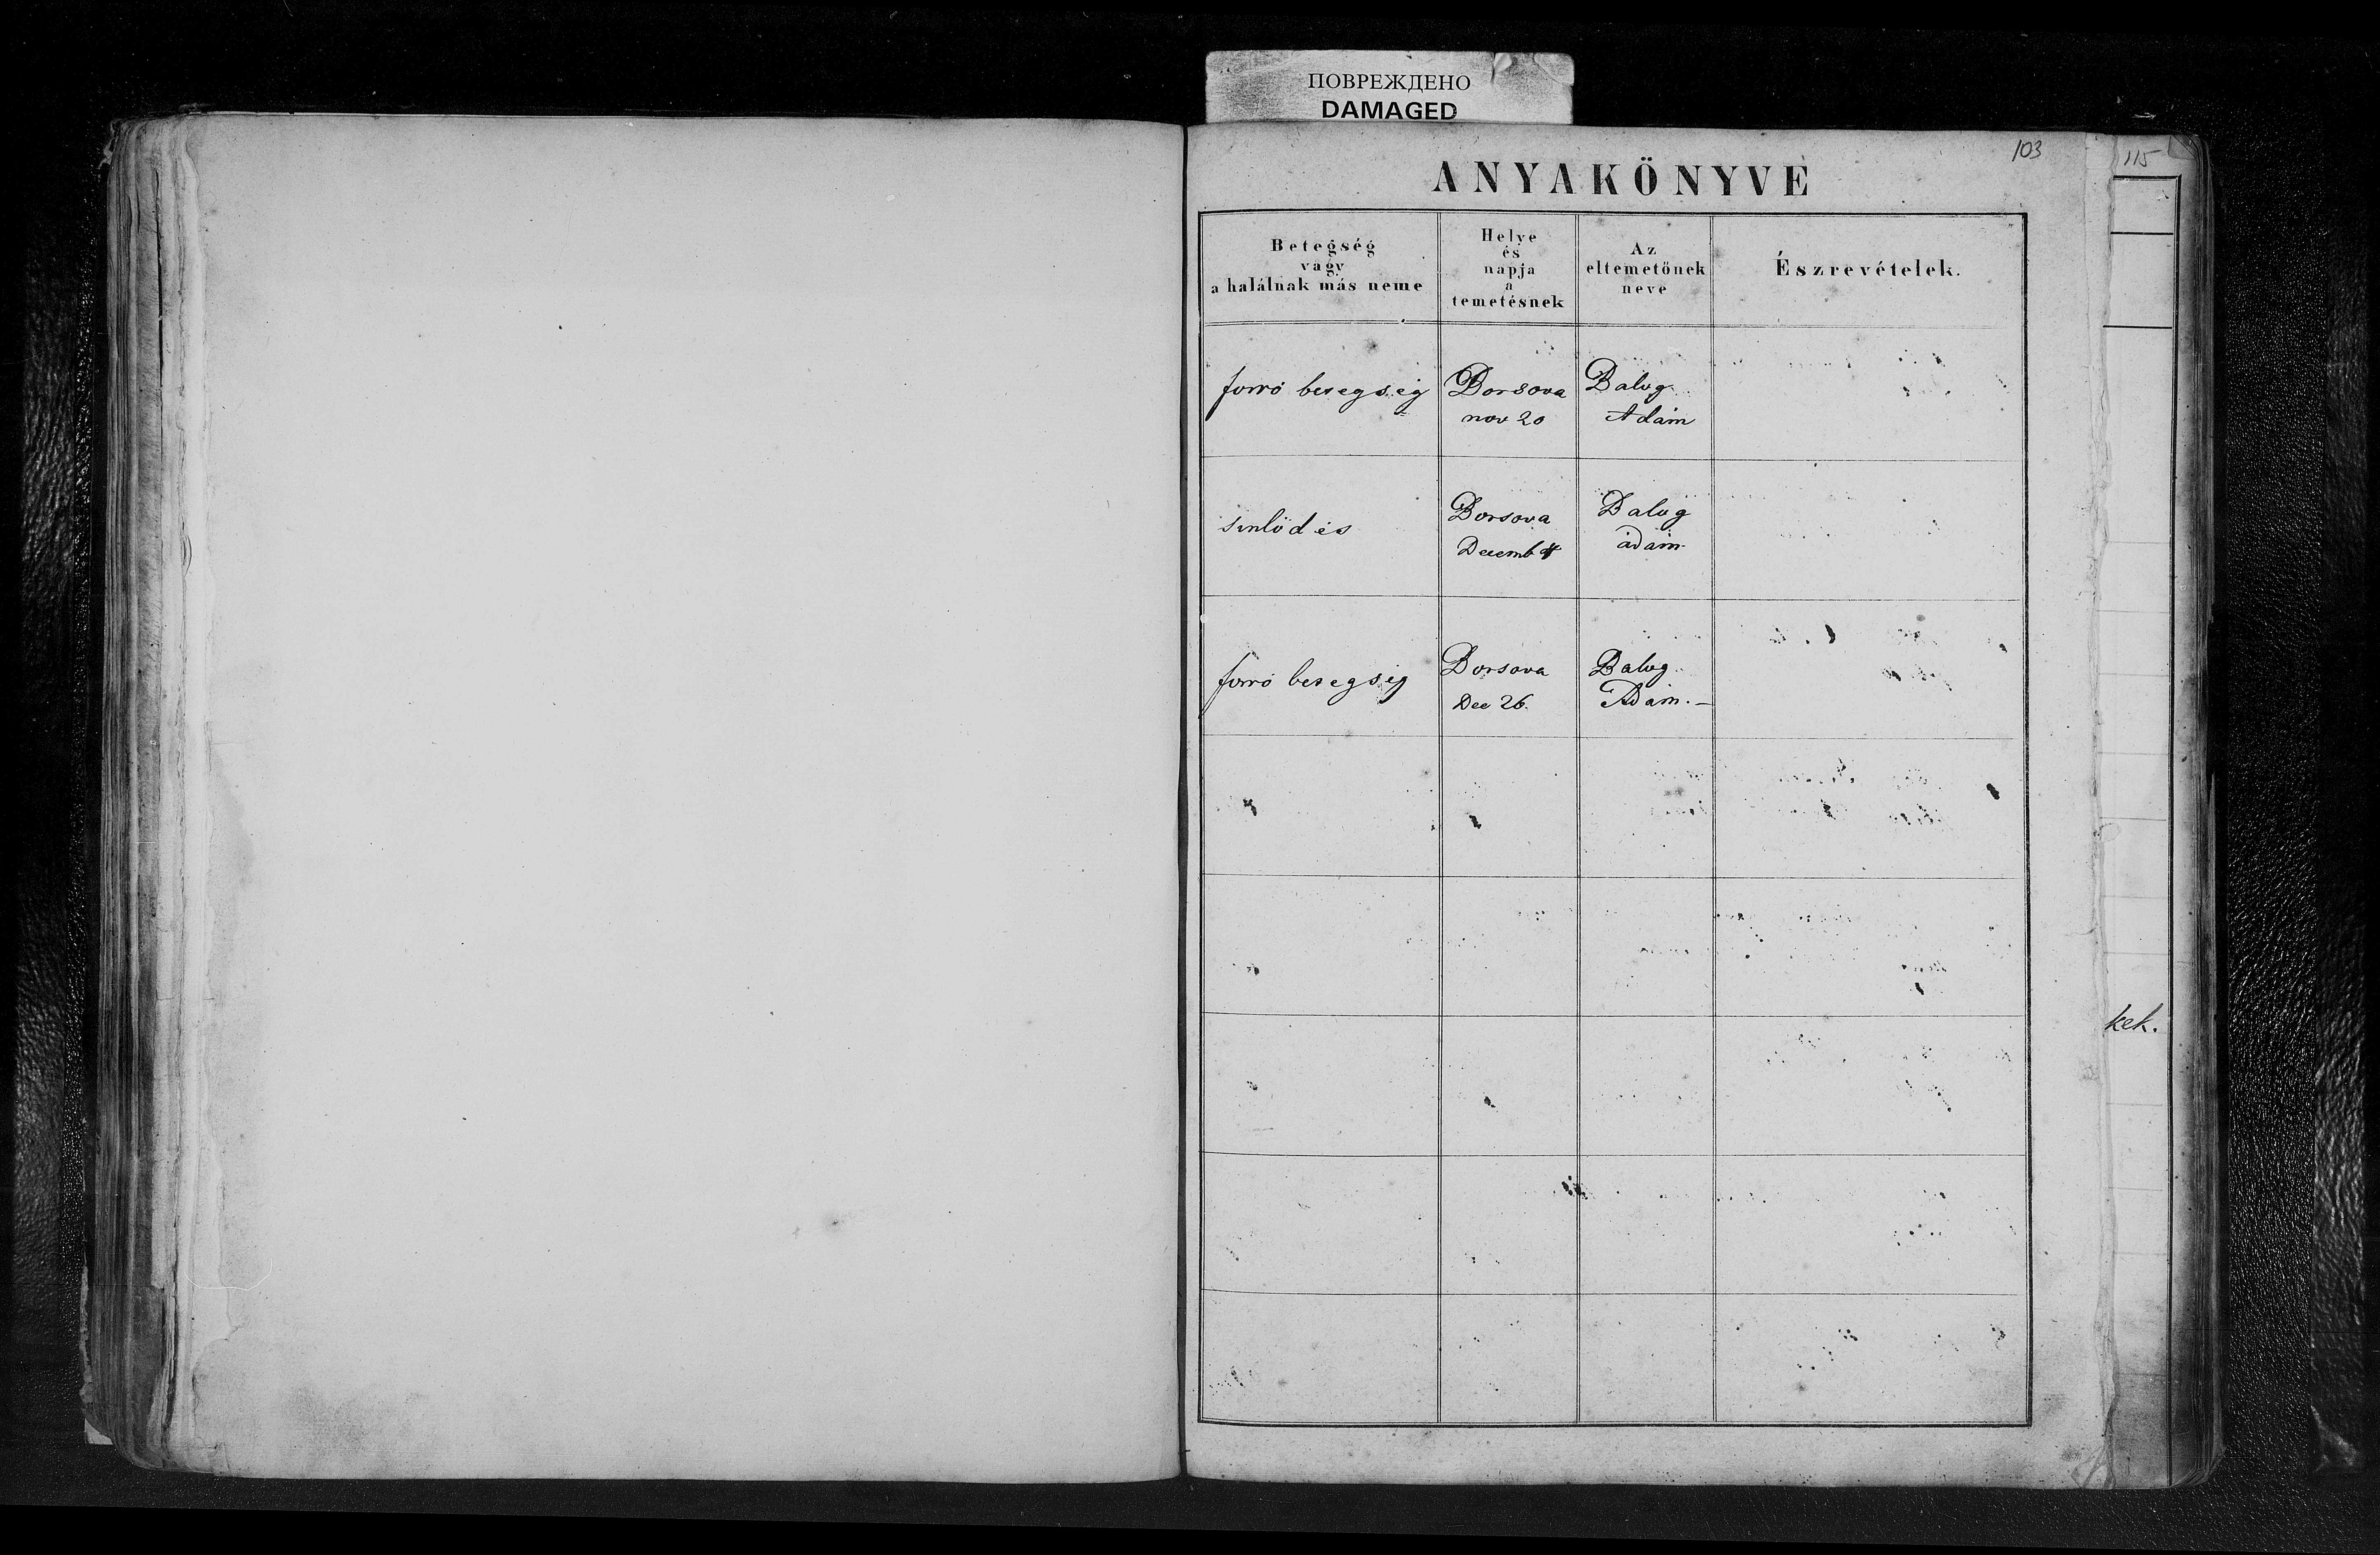 ПОВРЕЖДЕНО
DAMAGED
103
115
ANYAKÖNYVE
Betegség
vagy
a halálnak más neme
Helye
és
napja
a
temetésnek
Az
eltemetőnek
neve
Észrevételek.
forró betegség
Borsova
nov 20
Balog
Adám
sinlődés
Borsova
Decemb
Balog
ádám
forró betegség
Borsova
Dec 26.
Balog
Ádám. –
kek.